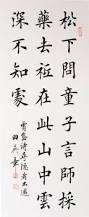 松下問童子言師採
藥去祇在此山中雲
深不知處
賈島詩尋隱者不遇
田英章